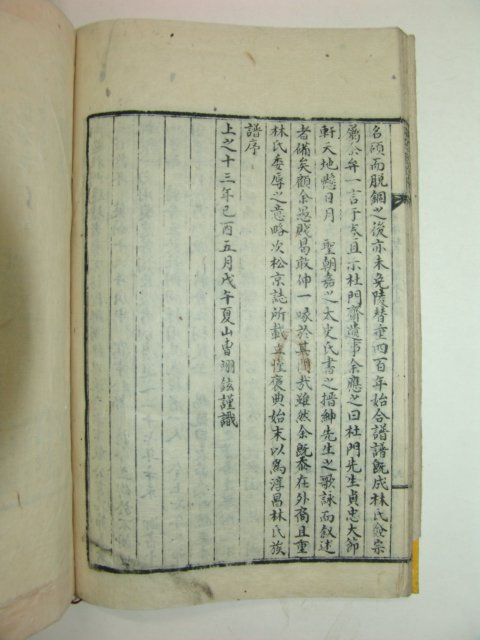 名碩而脫錮之後亦未免陵替垂四百年始合譜譜旣成林氏僉宗
屬余弁一言于卷且示杜門齋遺事余應之曰杜門先生貞忠大節
軒天地懸日月 聖朝嘉之太史氏書之搢紳先生之歌詠而叙述
者備矣顧余愚賤曷敢伸一喙於其間哉雖然余旣忝在外裔且重
林氏委辱之意略次松京誌所載立慬褒典始末以爲淳昌林氏族
譜序
上之十三年己酉五月戊午夏山曺翊鉉謹識